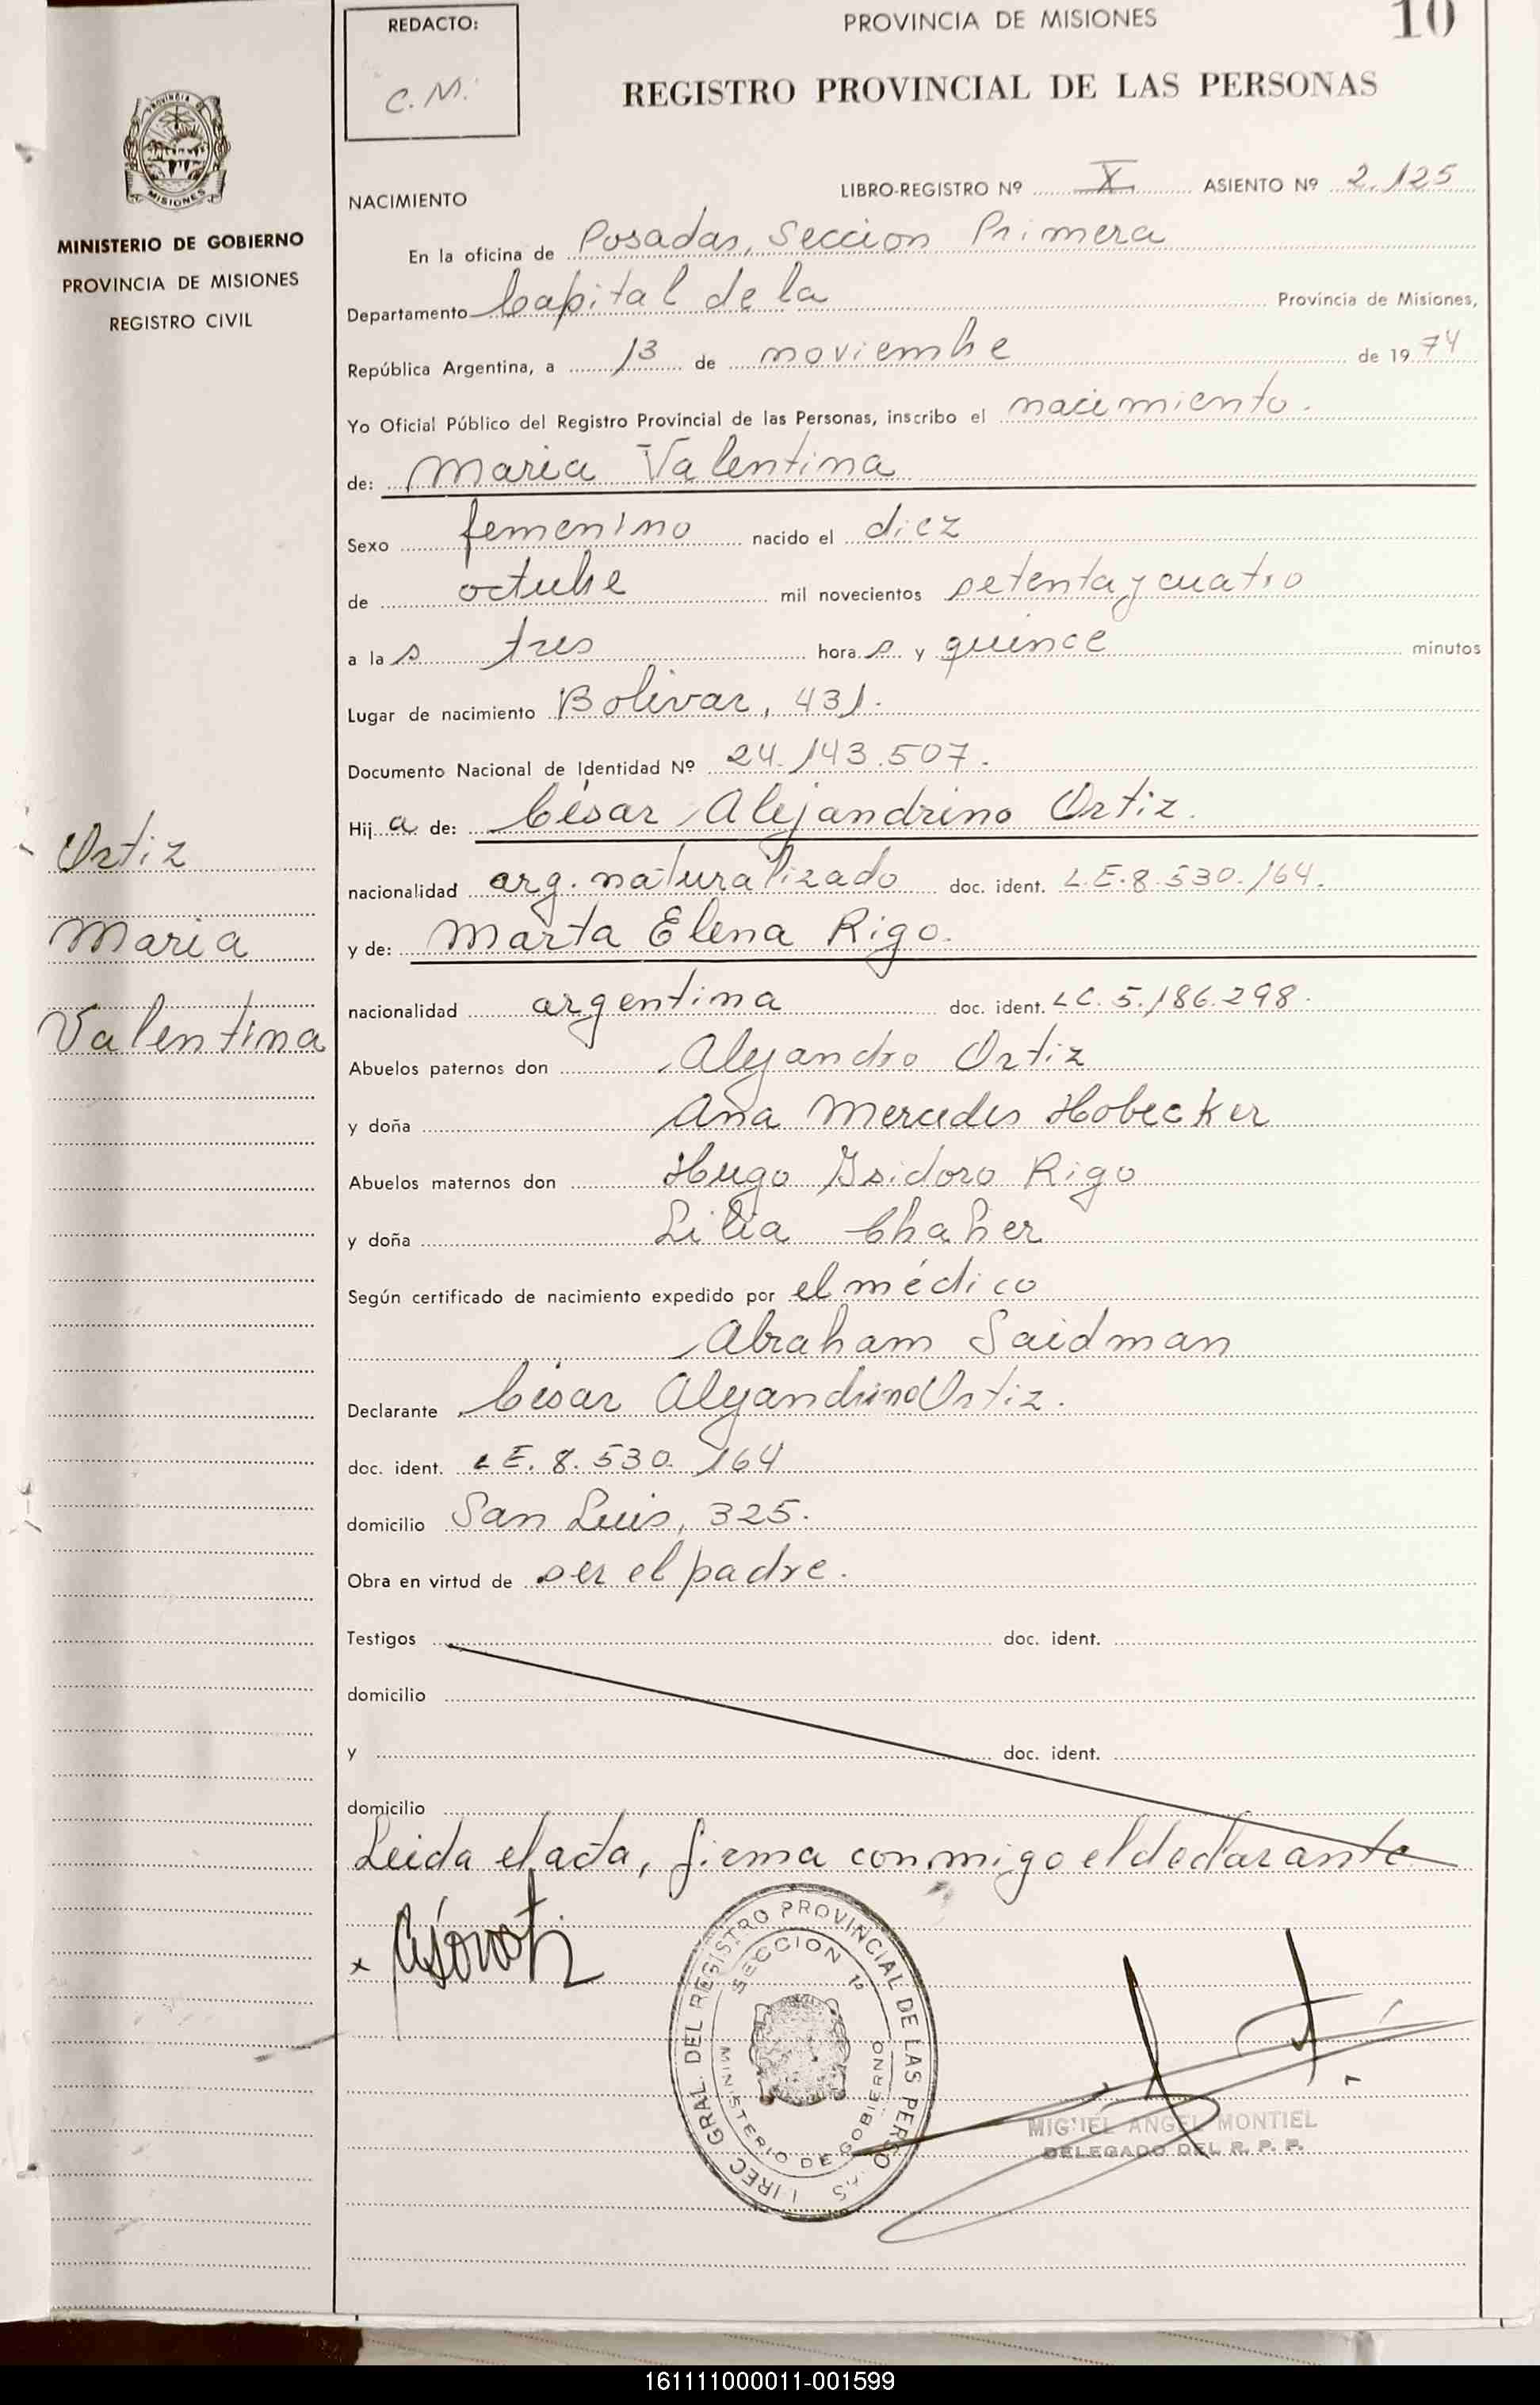 REDACTO:
C.M.
PROVINCIA DE MISIONES
10
REGISTRO PROVINCIAL DE LAS PERSONAS
PROVINCIA DE
MISIONES
MINISTERIO DE GOBIERNO
PROVINCIA DE MISIONES
REGISTRO CIVIL
NACIMIENTO
LIBRO-REGISTRO Nº X ASIENTO Nº 2.125
En la oficina de Posadas, Seccion Primera
Departamento Capital de la Provincia de Misiones,
República Argentina, a 13 de noviembre de 1974
Yo Oficial Público del Registro Provincial de las Personas, inscribo el nacimiento.
de: Maria Valentina
Sexo femenino nacido el diez
de octubre mil novecientos setenta y cuatro
a las tres horas y quince minutos
Lugar de nacimiento Bolivar, 431.
Documento Nacional de Identidad Nº 24.143.507.
Hija de: César Alejandrino Ortiz.
nacionalidad arg. naturalizado doc. ident. L.E. 8.530.164.
y de: Marta Elena Rigo.
nacionalidad argentina doc. ident. LC. 5.186.298.
Abuelos paternos don Alejandro Ortiz
y doña Ana Mercedes Hobecker
Abuelos maternos don Hugo Isidoro Rigo
y doña Lilia Chaher
Según certificado de nacimiento expedido por el médico
Abraham Saidman
Declarante César Alejandrino Ortiz.
doc. ident. LE. 8.530.164
domicilio San Luis, 325.
Obra en virtud de ser el padre.
Testigos doc. ident.
domicilio
y doc. ident.
domicilio
Leida el acta, firma conmigo el declarante
Ortiz
Maria
Valentina
x
DIREC. GRAL. DEL REGISTRO PROVINCIAL DE LAS PERSONAS
SECCION 1ª
MINISTERIO DE GOBIERNO
MIGUEL ANGEL MONTIEL
DELEGADO DEL R. P. P.
161111000011-001599